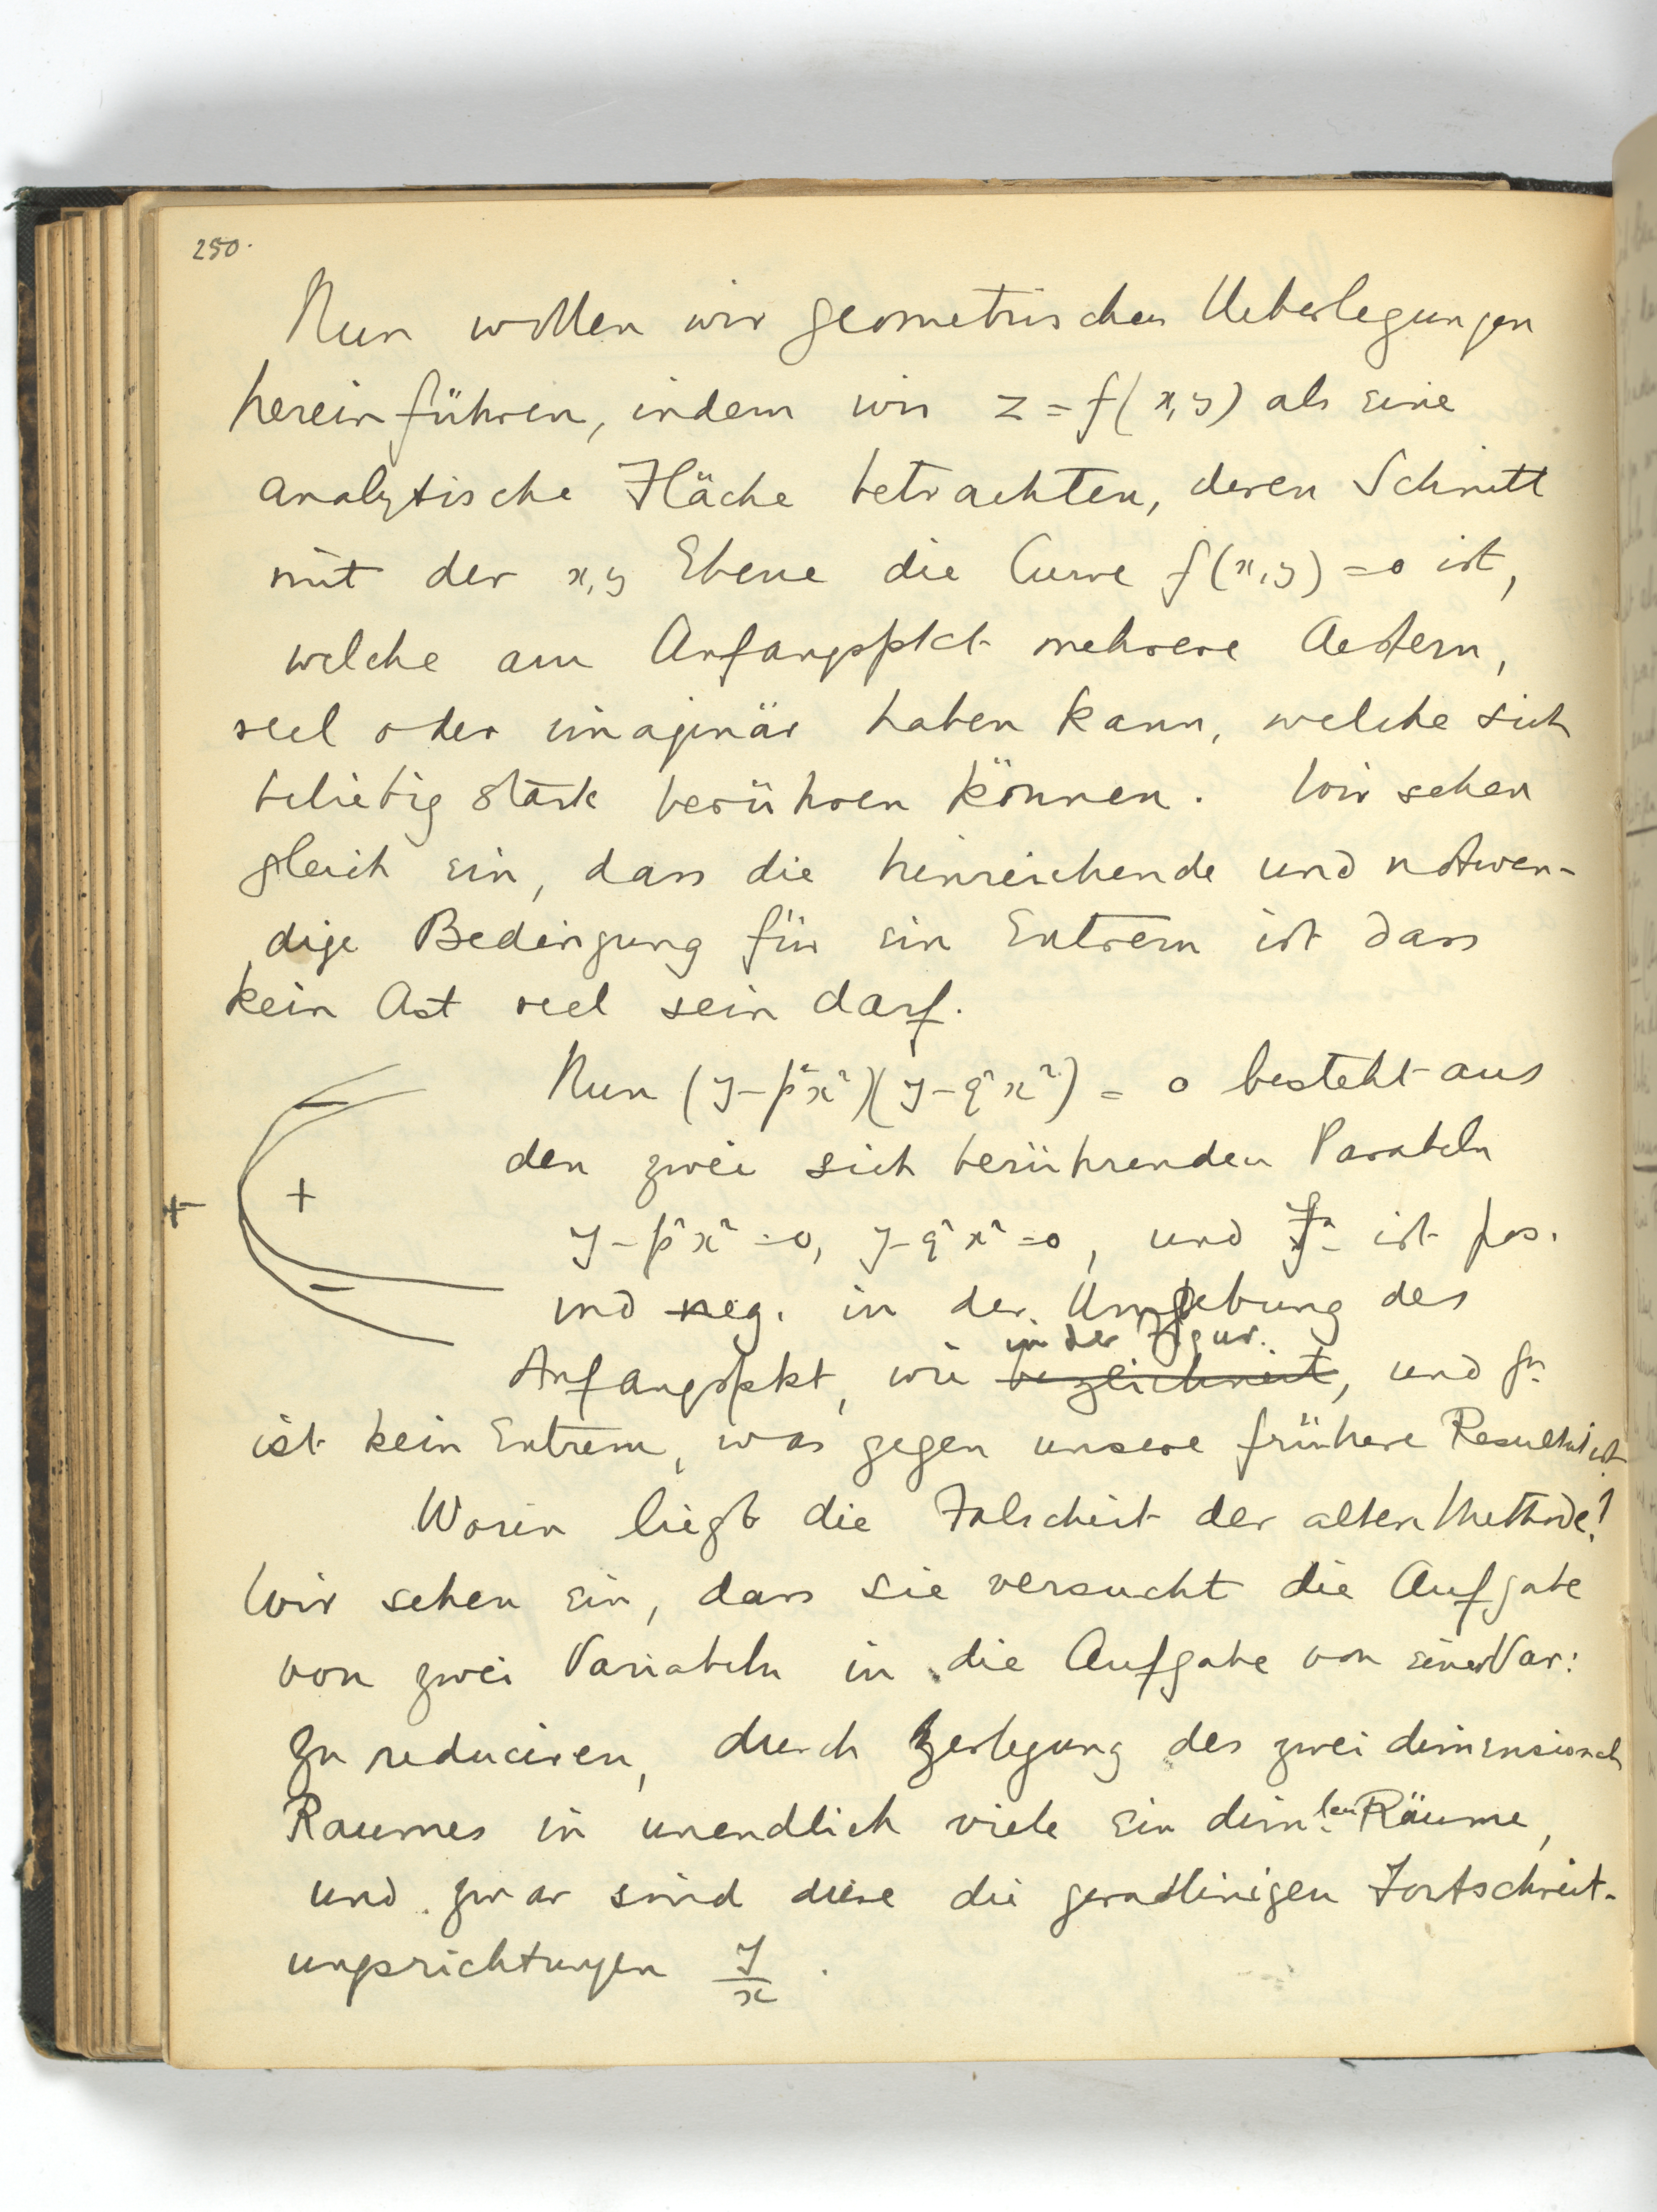 250.
Nun wollen wir geometrischen Ueberlegungen
hereinführen, indem wir z = f(x,y) als eine
analytische Fläche betrachten, deren Schnitt
mit der x,y Ebene die Curve f(x,y) = 0 ist,
welche am Anfangspkt mehrere Aestern,
reel oder imaginär haben kann, welche sich
beliebig stark berühren können. Wir sehen
gleich ein, dass die hinreichende und notwen-
dige Bedingung für ein Extrem ist dass
kein Ast reel sein darf.
Nun (y-p²x²)(y-q²x²) = 0 besteht aus
den zwei sich berührenden Parabeln
y-p²x²=0, y-q²x²=0, und ist pos.
und neg. in der Umgebung des
in der Figur.
Anfangspkt, wie bezeichnet, und fn
ist kein Extrem, was gegen unsere frühere Resultat ist.
Worin liegt die Falscheit der alten Methode?
Wir sehen ein, dass sie versucht die Aufgabe
von zwei Variabeln in die Aufgabe von einer Var:
zu reduciren, durch Zerlegung des zwei dimensional
Raumes in unendlich viele ein dim.len Räume,
und zwar sind diese die geradlinigen Fortschreit-
ungsrichtungen y/x.
+ + - -